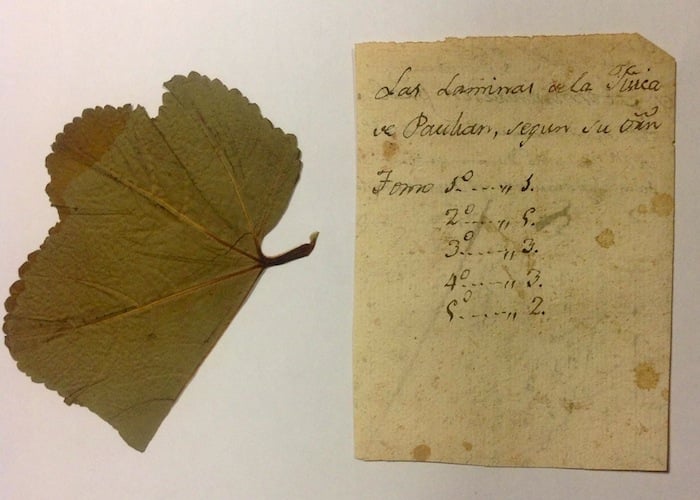 Las Laminas de la Fisica
de Paulian, segun su orñ
Tomo 1º......,, 5.
2º......,, 5.
3º......,, 3.
4º......,, 3.
5º......,, 2.